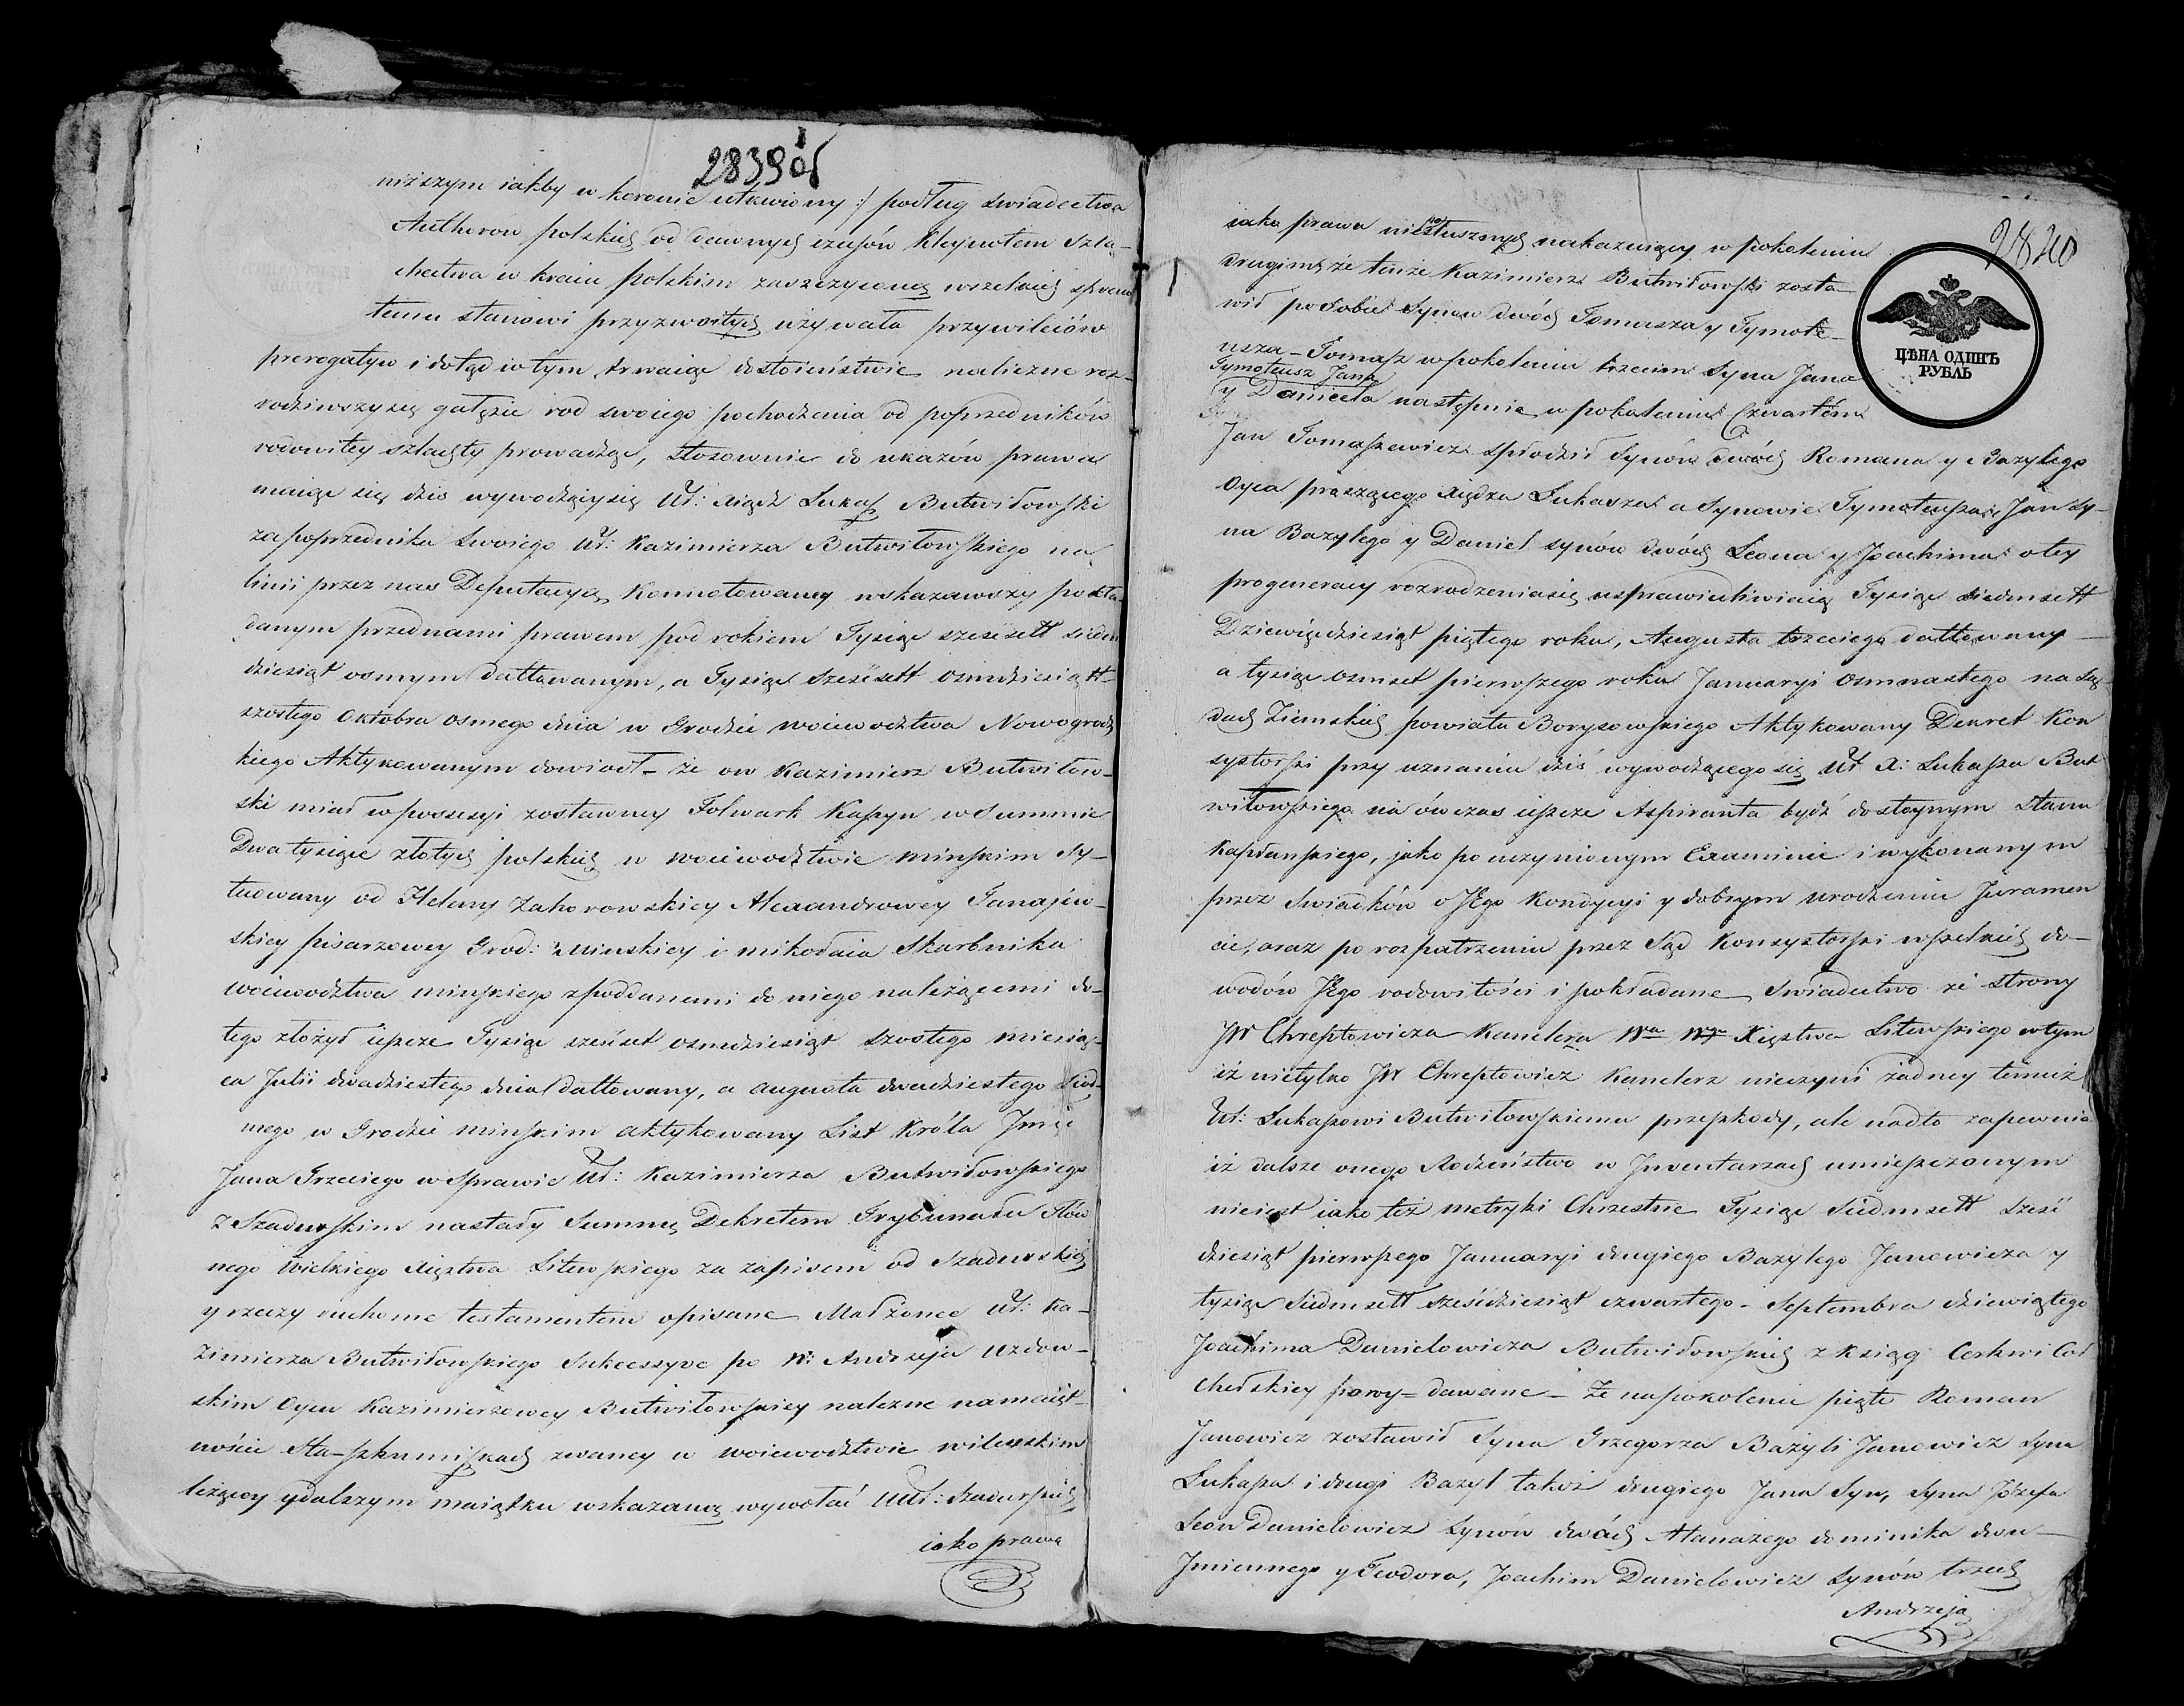 2839 об
niższym iakby w koronie utkwiony :/ podług swiadectwa
Authorów polskich od dawnych czasów kleynotem szla-
chectwa w kraiu polskim zaszczycona wszelkich
temu stanowi przyzwoitych używała przywileiów
prerogatyw i dotąd w tym trwaiąc dostoieństwie na liczne roz-
rodziwszy się gałęzie ród swoiego pochodzenia od poprzedników
rodowitey szlachty prowadząc, stosownie do ukazów prawa
maiąc się dziś wywodzący się Ur: Xiądz Łukasz Butwiłowski
za poprzednika swoiego Ur: Kazimierza Butwiłowskiego na
linii przez nas Deputacyą konnotowaney wskazawszy pokła-
danym przed nami prawem pod rokiem Tysiąc sześćsett siedm
dziesiąt osmym dattowanym, a Tysiąc sześćsett osmdziesiątt
szóstego Oktobra osmego dnia w Grodzie woiewodztwa Nowogrodz
kiego Aktykowanym dowiodł – że ow Kazimierz Butwiłow-
ski miał w possesyi zostawney Folwark Kapyn w Summie
Dwa tysiące złotych polskich w woiewodztwie mińskim sy-
tuowany od Heleny Zahorowskiey Alexandrowey
skiey pisarzowey Grod: Minskiey i mikołaia Skarbnika
woiewodztwa minskiego z poddanemi do niego należącemi do
tego złożył ieszcze Tysiąc sześćset osmdziesiąt szóstego miesią-
ca Julii dwudziestego dnia dattowany, a augusta dwudziestego siód-
mego w Grodzie minskim aktykowany List Króla Jmci
Jana Trzeciego w sprawie Ur: Kazimierza Butwiłowskiego
z Szadurskim nastały Summę Dekretem Trybunału Głów
nego Wielkiego Xięstwa Litewskiego za zapisem od Szadurskich
y rzeczy ruchome testamentem opisane Małżonce Ur: Ka-
zimierza Butwiłowskiego Sukcessyve po W: Andrzeju Uzdow-
skim Oycu Kazimierzowey Butwiłowskiey należne na maięt-
ności zwaney w woiewodztwie wileńskim
leżącey y dalszym maiątku wskazaną wywołać UUr: Szadurskich
iako prawa
2840
ЦѢНА ОДИНЪ
РУБЛЬ
iako prawa nieposłusznych nakazuiący w pokoleniu
drugim, że tenże Kazimierz Butwiłowski zosta-
wił po sobie Synów dwóch Tomasza y Tymote-
usza – Tomasz w pokoleniu trzecim Syna Jana
Tymoteusz Jana
y Daniela następnie w pokoleniu Czwartém
Jan Tomaszewicz spłodził Synów dwóch Romana y Bazylego
Oyca proszącego Xiędza Łukasza a Synowie Tymoteusza Jan Sy-
na Bazylego y Daniel synów dwóch Leona y Joachima o tey
progeneracy rozrodzenia się usprawiedliwiaią Tysiąc siedmsett
Dziewięćdziesiąt piątego roku, Augusta trzeciego dattowany
a tysiąc osmset pierwszego roku Januaryi osmnastego na Są-
dach Ziemskich powiatu Borysowskiego Aktykowany Dekret Kon
systorski przy uznaniu dziś wywodzącego się Ur X: Łukasza But
wiłowskiego na ówczas ieszcze Aspiranta bydź dostoynym stanu
Kapłanskiego, jako po uczynionym Examinie i wykonanym
przez Swiadków o Jego Kondycyi y dobrym urodzeniu Juramen
cie, oraz po rozpatrzeniu przez Sąd Konsystorski wszelkich do-
wodów Jego rodowitości i pokładane Swiadectwo ze strony
JW Chreptowicza Kanclerza Wa Wgo Xięstwa Litewskiego w tym
iż nietylko JW Chreptowicz Kanclerz nieczyni żadney temuż
Ur: Łukaszowi Butwiłowskiemu przeszkody, ale nadto zapewnia
iż dalsze onego Rodzeństwo w Jnwentarzach umieszczonym
nieiest iako też metryki Chrzestne Tysiąc Siedmsett sześć
dziesiąt pierwszego Januaryi drugiego Bazylego Janowicza y
tysiąc Siedmsett sześćdziesiąt czwartego – Septembra dziewiątego
Joachima Danielowicza Butwiłowskich z ksiąg Cerkwi Coł
chelskiey powy-dawane – Że na pokolenie piąte Roman
Janowicz zostawił Syna Grzegorza Bazyli Janowicz Syna
Łukasza i drugi Bazyl takoż drugiego Jana Syn, Syna Józefa
Leon Danielowicz Synów dwóch Atanazego dominika dwu-
Jmiennego y Teodora, Joachim Danielowicz Synów trzech
Andrzeja